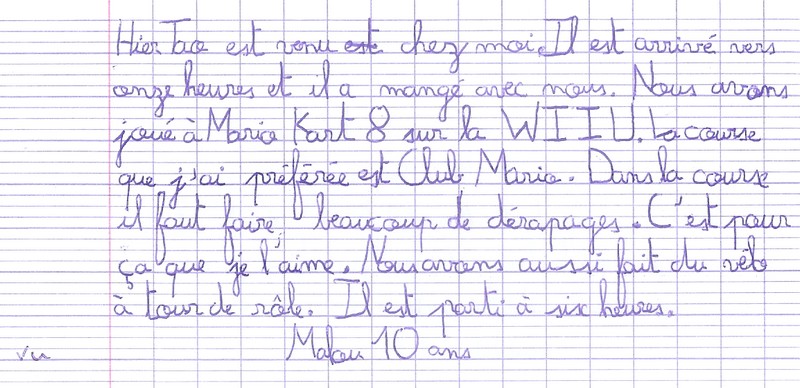 Hier Tao est venu est chez moi. Il est arrivé vers
onze heures et il a mangé avec nous. Nous avons
joué à Mario Kart 8 sur la WIIU. La course
que j'ai préférée est Club Mario. Dans la course
il faut faire beaucoup de dérapages. C'est pour
ça que je l'aime. Nous avons aussi fait du vélo
à tour de rôle. Il est parti à six heures.
Malou 10 ans
vu